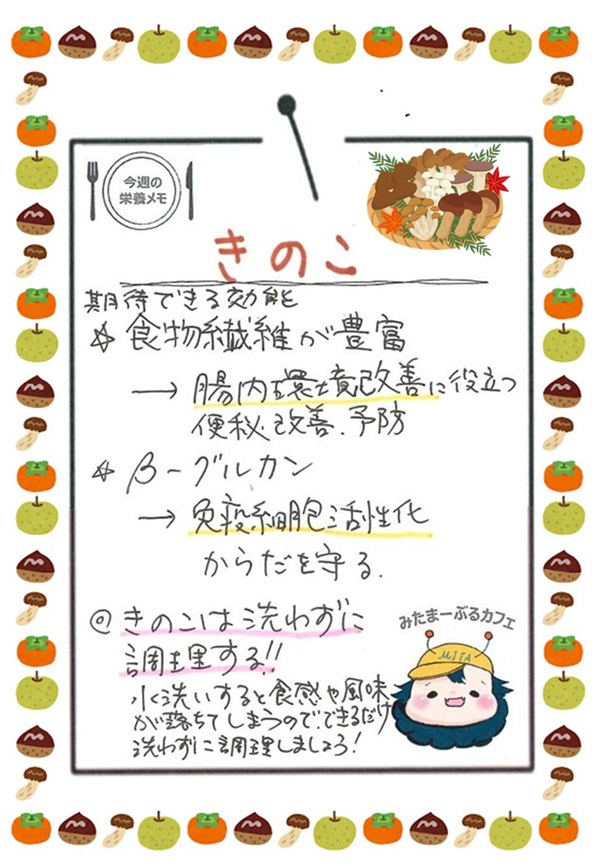 今週の
栄養メモ
きのこ
期待できる効能
☆ 食物繊維が豊富
→ 腸内環境改善に役立つ
便秘改善、予防
☆ β-グルカン
→ 免疫細胞活性化
からだを守る.
@ きのこは洗わずに
調理する!!
水洗いすると食感や風味
が落ちてしまうので、できるだけ
洗わずに調理しましょう!
みたまーぶるカフェ
MITA